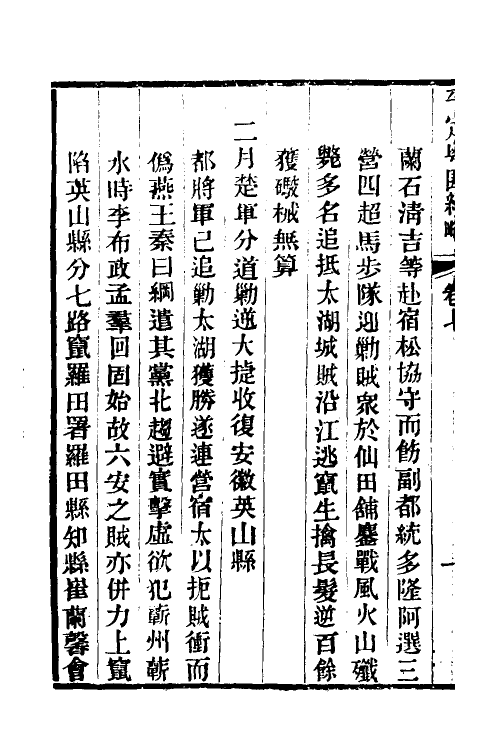 蘭石清吉等赴宿松協守而飭副都統多隆阿選三
營四超馬步隊迎勦賊衆於仙田舖鏖戰風火山殲
斃多名追抵太湖城賊沿江逃竄生擒長髮逆百餘
獲礮械無算
二月楚軍分道勦逆大捷收復安徽英山縣
都將軍已追勦太湖獲勝遂連營宿太以扼賊衝而
僞燕王秦曰綱遣其黨北趨避實擊虛欲犯蘄州蘄
水時李布政孟羣回固始故六安之賊亦併力上竄
陷英山縣分七路竄羅田署羅田縣知縣崔蘭馨會